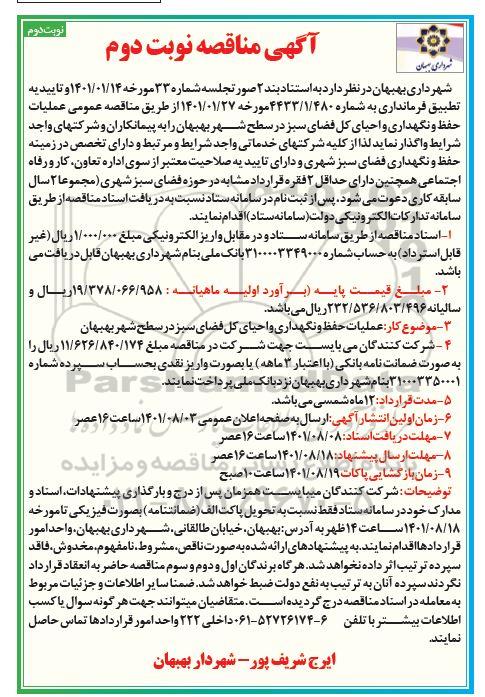 نوبت دوم
آگهی مناقصه نوبت دوم
شهرداری بهبهان
شهرداری بهبهان در نظر دارد به استناد بند ۲ صورتجلسه شماره ۳۳ مورخه ۱۴۰۱/۰۱/۱۴ و تاییدیه
تطبیق فرمانداری به شماره ۴۴۳۳/۱/۴۸۰ مورخه ۱۴۰۱/۰۱/۲۷ از طریق مناقصه عمومی عملیات
حفظ و نگهداری و احیای کل فضای سبز در سطح شهر بهبهان را به پیمانکاران و شرکتهای واجد
شرایط واگذار نماید لذا از کلیه شرکتهای خدماتی واجد شرایط و مرتبط و دارای تخصص در زمینه
حفظ و نگهداری فضای سبز شهری و دارای تاییدیه صلاحیت معتبر از سوی اداره تعاون، کار و رفاه
اجتماعی همچنین دارای حداقل ۲ فقره قرارداد مشابه در حوزه فضای سبز شهری (مجموعا ۲ سال
سابقه کاری دعوت می شود، پس از ثبت نام در سامانه ستاد نسبت به دریافت اسناد مناقصه از طریق
سامانه تدارکات الکترونیکی دولت (سامانه ستاد) اقدام نمایند.
۱- اسناد مناقصه از طریق سامانه ستاد و در مقابل واریز الکترونیکی مبلغ ۱/۰۰۰/۰۰۰ ریال (غیر
قابل استرداد) به حساب شماره ۳۱۰۰۰۰۳۳۴۹۰۰۰ بانک ملی بنام شهرداری بهبهان قابل دریافت می
باشد.
۲- مبلغ قیمت پایه (برآورد اولیه ماهیانه : ۱۹/۳۷۸/۰۶۶/۹۵۸ ریال و
سالیانه ۲۳۲/۵۳۶/۸۰۳/۴۹۶ ریال می باشد.
۳- موضوع کار: عملیات حفظ و نگهداری و احیای کل فضای سبز در سطح شهر بهبهان
۴- شرکت کنندگان می بایست جهت شرکت در مناقصه مبلغ ۱۱/۶۲۶/۸۴۰/۱۷۴ ریال را
به صورت ضمانت نامه بانکی (با اعتبار ۳ ماهه) یا بصورت واریز نقدی بحساب سپرده شماره
۳۱۰۰۰۳۳۵۰۰۰۱ بنام شهرداری بهبهان نزد بانک ملی پرداخت نمایند.
۵- مدت قرارداد: ۱۲ ماه شمسی می باشد.
۶- زمان اولین انتشار آگهی: ارسال به صفحه اعلان عمومی ۱۴۰۱/۰۸/۰۳ ساعت ۱۶ عصر
۷- مهلت دریافت اسناد: ۱۴۰۱/۰۸/۰۸ ساعت ۱۶ عصر
۸- مهلت ارسال پیشنهاد: ۱۴۰۱/۰۸/۱۸ ساعت ۱۶ عصر
۹- زمان بازگشایی پاکات ۱۴۰۱/۰۸/۱۹ ساعت ۱۰ صبح
توضیحات: شرکت کنندگان میبایست همزمان پس از درج و بارگذاری پیشنهادات، اسناد و
مدارک خود در سامانه ستاد فقط نسبت به تحویل پاکت الف (ضمانتنامه) بصورت فیزیکی تا مورخه
۱۴۰۱/۰۸/۱۸ ساعت ۱۴ ظهر به آدرس: بهبهان، خیابان طالقانی، شهرداری بهبهان، واحد امور
قراردادها اقدام نمایند. به پیشنهادهای ارائه شده به صورت ناقص، مشروط، نامفهوم، مخدوش، فاقد
سپرده ترتیب اثر داده نخواهد شد. هرگاه برندگان اول و دوم و سوم مناقصه حاضر به انعقاد قرارداد
نگردند سپرده آنان به ترتیب به نفع دولت ضبط خواهد شد. ضمنا سایر اطلاعات و جزئیات مربوط
به معامله در اسناد مناقصه درج گردیده است. متقاضیان میتوانند جهت هر گونه سوال یا کسب
اطلاعات بیشتر با تلفن ۶-۵۲۷۲۶۱۷۴-۰۶۱ داخلی ۲۲۲ واحد امور قراردادها تماس حاصل
نمایند.
ایرج شریف پور - شهردار بهبهان